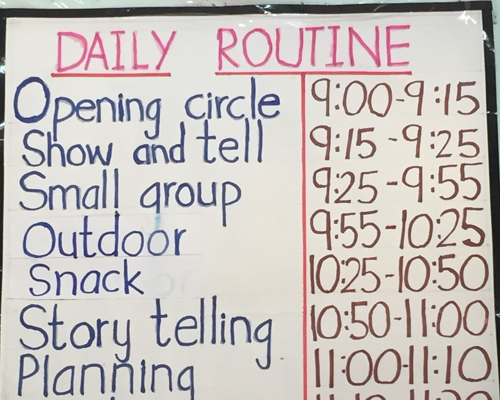 DAILY ROUTINE
Opening circle 9:00-9:15
Show and tell 9:15-9:25
Small group 9:25-9:55
Outdoor 9:55-10:25
Snack 10:25-10:50
Story telling 10:50-11:00
Planning 11:00-11:10